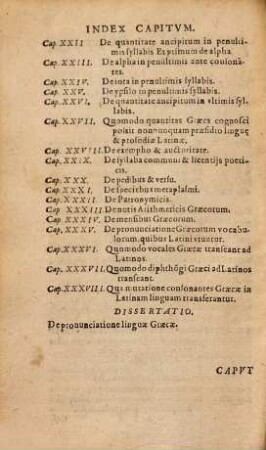 INDEX CAPITVM.
Cap. XXII De quantitate ancipitum in penulti-
mis syllabis. Et primum de alpha.
Cap. XXIII. De alpha in penultimis ante consonã-
tes.
Cap. XXIV. De iota in penultimis syllabis.
Cap. XXV. De ypsilo in penultimis syllabis.
Cap. XXVI. De quantitate ancipitum in vltimis syl-
labis.
Cap. XXVII. Quomodo quantitas Græcs cognosci
possit nonnunquam præsidio linguę
& prosodiæ Latinæ.
Cap. XXVIII. De exemplo & auctoritate.
Cap. XXIX. De syllaba communi & licentijs poeti-
cis.
Cap. XXX. De pedibus & versu.
Cap. XXXI. De speciebus metaplasmi.
Cap. XXXII De Patronymicis.
Cap. XXXIII De notis Arithmeticis Græcorum.
Cap. XXXIV. De mensibus Græcorum.
Cap. XXXV. De pronunciatione Græcorum vocabu-
lorum, quibus Latini vtuntur.
Cap. XXXVI. Quomodo vocales Græcæ transeant ad
Latinos.
Cap. XXXVII. Quomodo diphthõgi Græci ad Latinos
transeant.
Cap. XXXVIII. Qua mutatione consonantes Græcæ in
Latinam linguam transferantur.
DISSERTATIO.
De pronunciatione linguæ Græcæ.
CAPVT